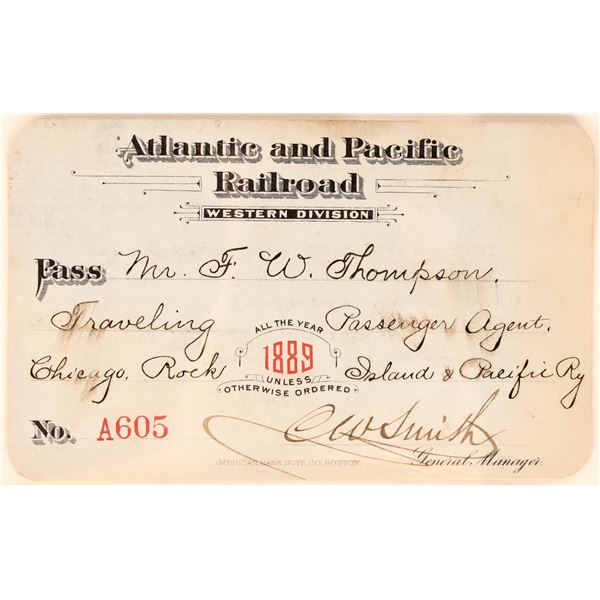 Atlantic and Pacific
Railroad
WESTERN DIVISION
Pass Mr. F. W. Thompson.
Traveling Passenger Agent.
ALL THE YEAR
1889
UNLESS
OTHERWISE ORDERED
Chicago, Rock Island & Pacific Ry
No. A605
C W Smith
General Manager.
AMERICAN BANK NOTE CO. BOSTON.